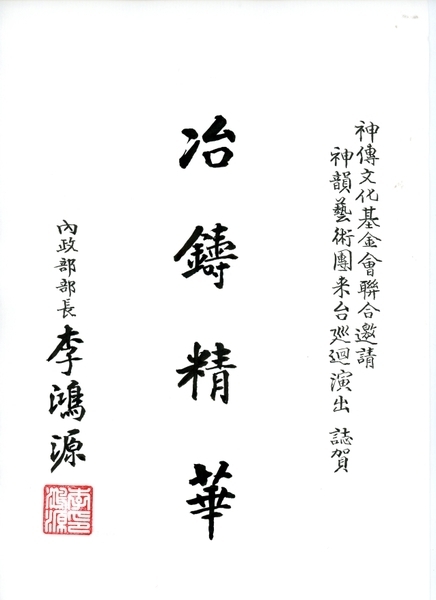 神傳文化基金會聯合邀請
神韻藝術團来台巡迴演出 誌賀
冶鑄精華
內政部部長 李鴻源
李鴻源印